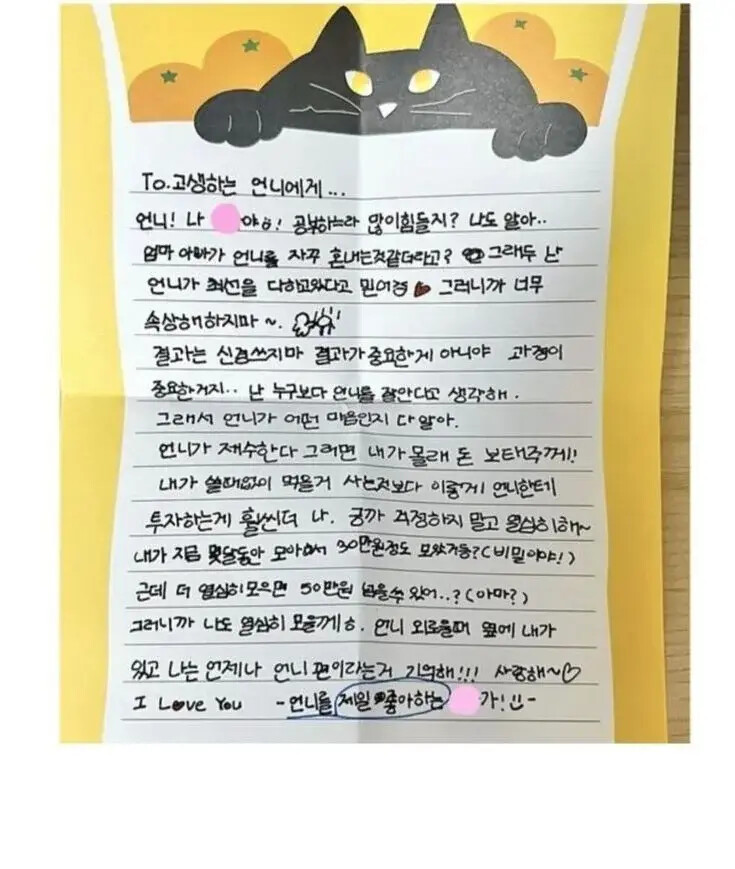 To.고생하는 언니에게...
언니! 나 야ㅎ! 공부하느라 많이힘들지? 나도 알아..
엄마 아빠가 언니를 자꾸 혼내는것같더라고? 그래두 난
언니가 최선을 다하고있다고 믿어경 그러니까 너무
속상해하지마~.
결과는 신경쓰지마 결과가중요한게 아니야 과정이
중요한거지.. 난 누구보다 언니를 잘안다고 생각해.
그래서 언니가 어떤 마음인지 다 알아.
언니가 재수한다 그러면 내가 몰래 돈 보태주께!!
내가 쓸때없이 먹을거 사는것보다 이렇게 언니한테
투자하는게 훨씬더 나. 긍까 걱정하지 말고 열심히해~
내가 지금 몇달동안 모아써서 30만원정도 모았거등?(비밀이야!)
근데 더 열심히모으면 50만원 넘을수 있어..?(아마?)
그러니까 나도 열심히 모을께ㅎ. 언니 외로울때 옆에 내가
있고 나는 언제나 언니 편이라는거 기억해!!! 사랑해~♡
I Love You -언니를 제일 좋아하는 가!!-